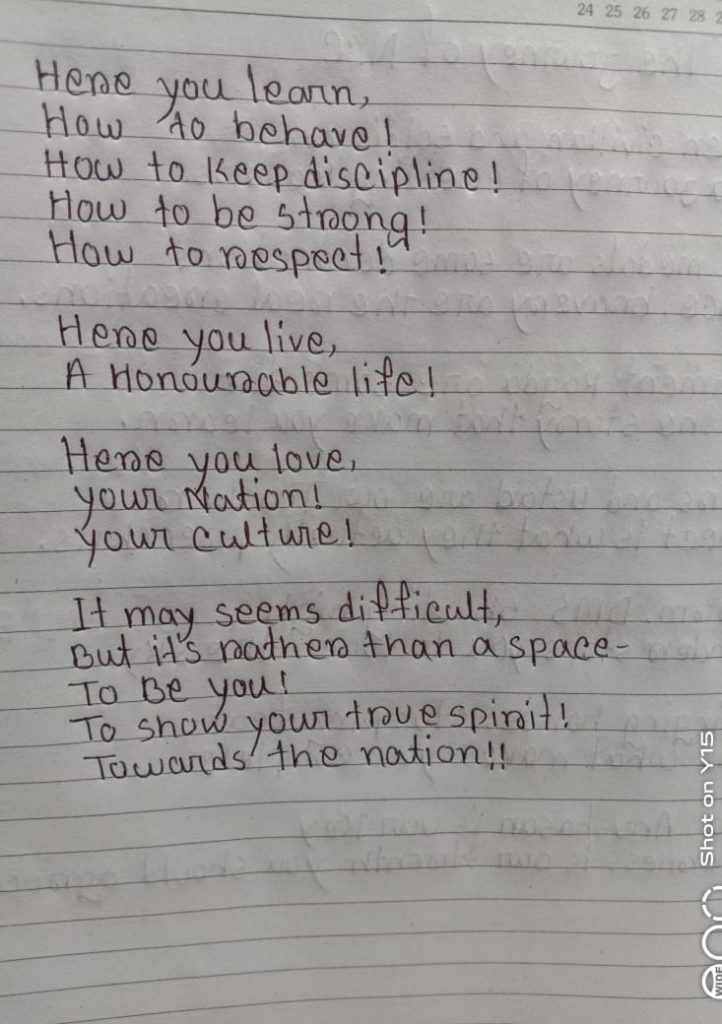 24 25 26 27 28 2
Here you learn,
How to behave!
How to keep discipline!
How to be strong!
How to respect!
Here you live,
A Honourable life!
Here you love,
your Nation!
your culture!
It may seems difficult,
But it's rather than a space-
To Be you!
To show your true spirit!
Towards the nation!!
Shot on Y15
WIDE